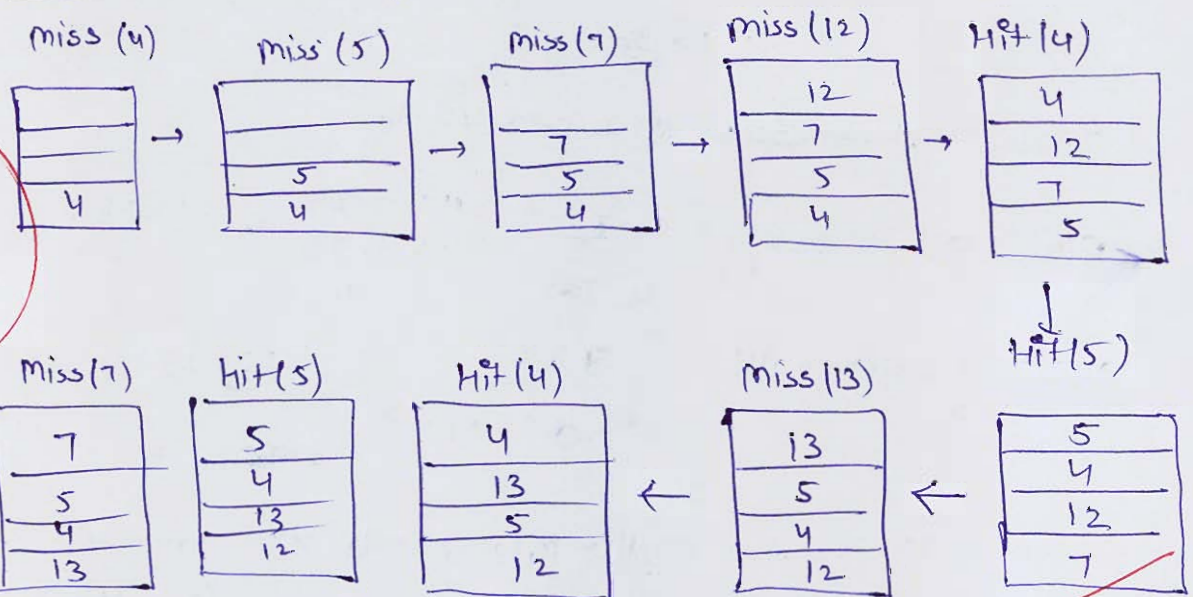 Miss (4)
4
Miss (5)
5
4
Miss (7)
7
5
4
Miss (12)
12
7
5
4
Hit (4)
4
12
7
5
Hit (5)
5
4
12
7
Miss (13)
13
5
4
12
Hit (4)
4
13
5
12
Hit (5)
5
4
13
12
Miss (7)
7
5
4
13